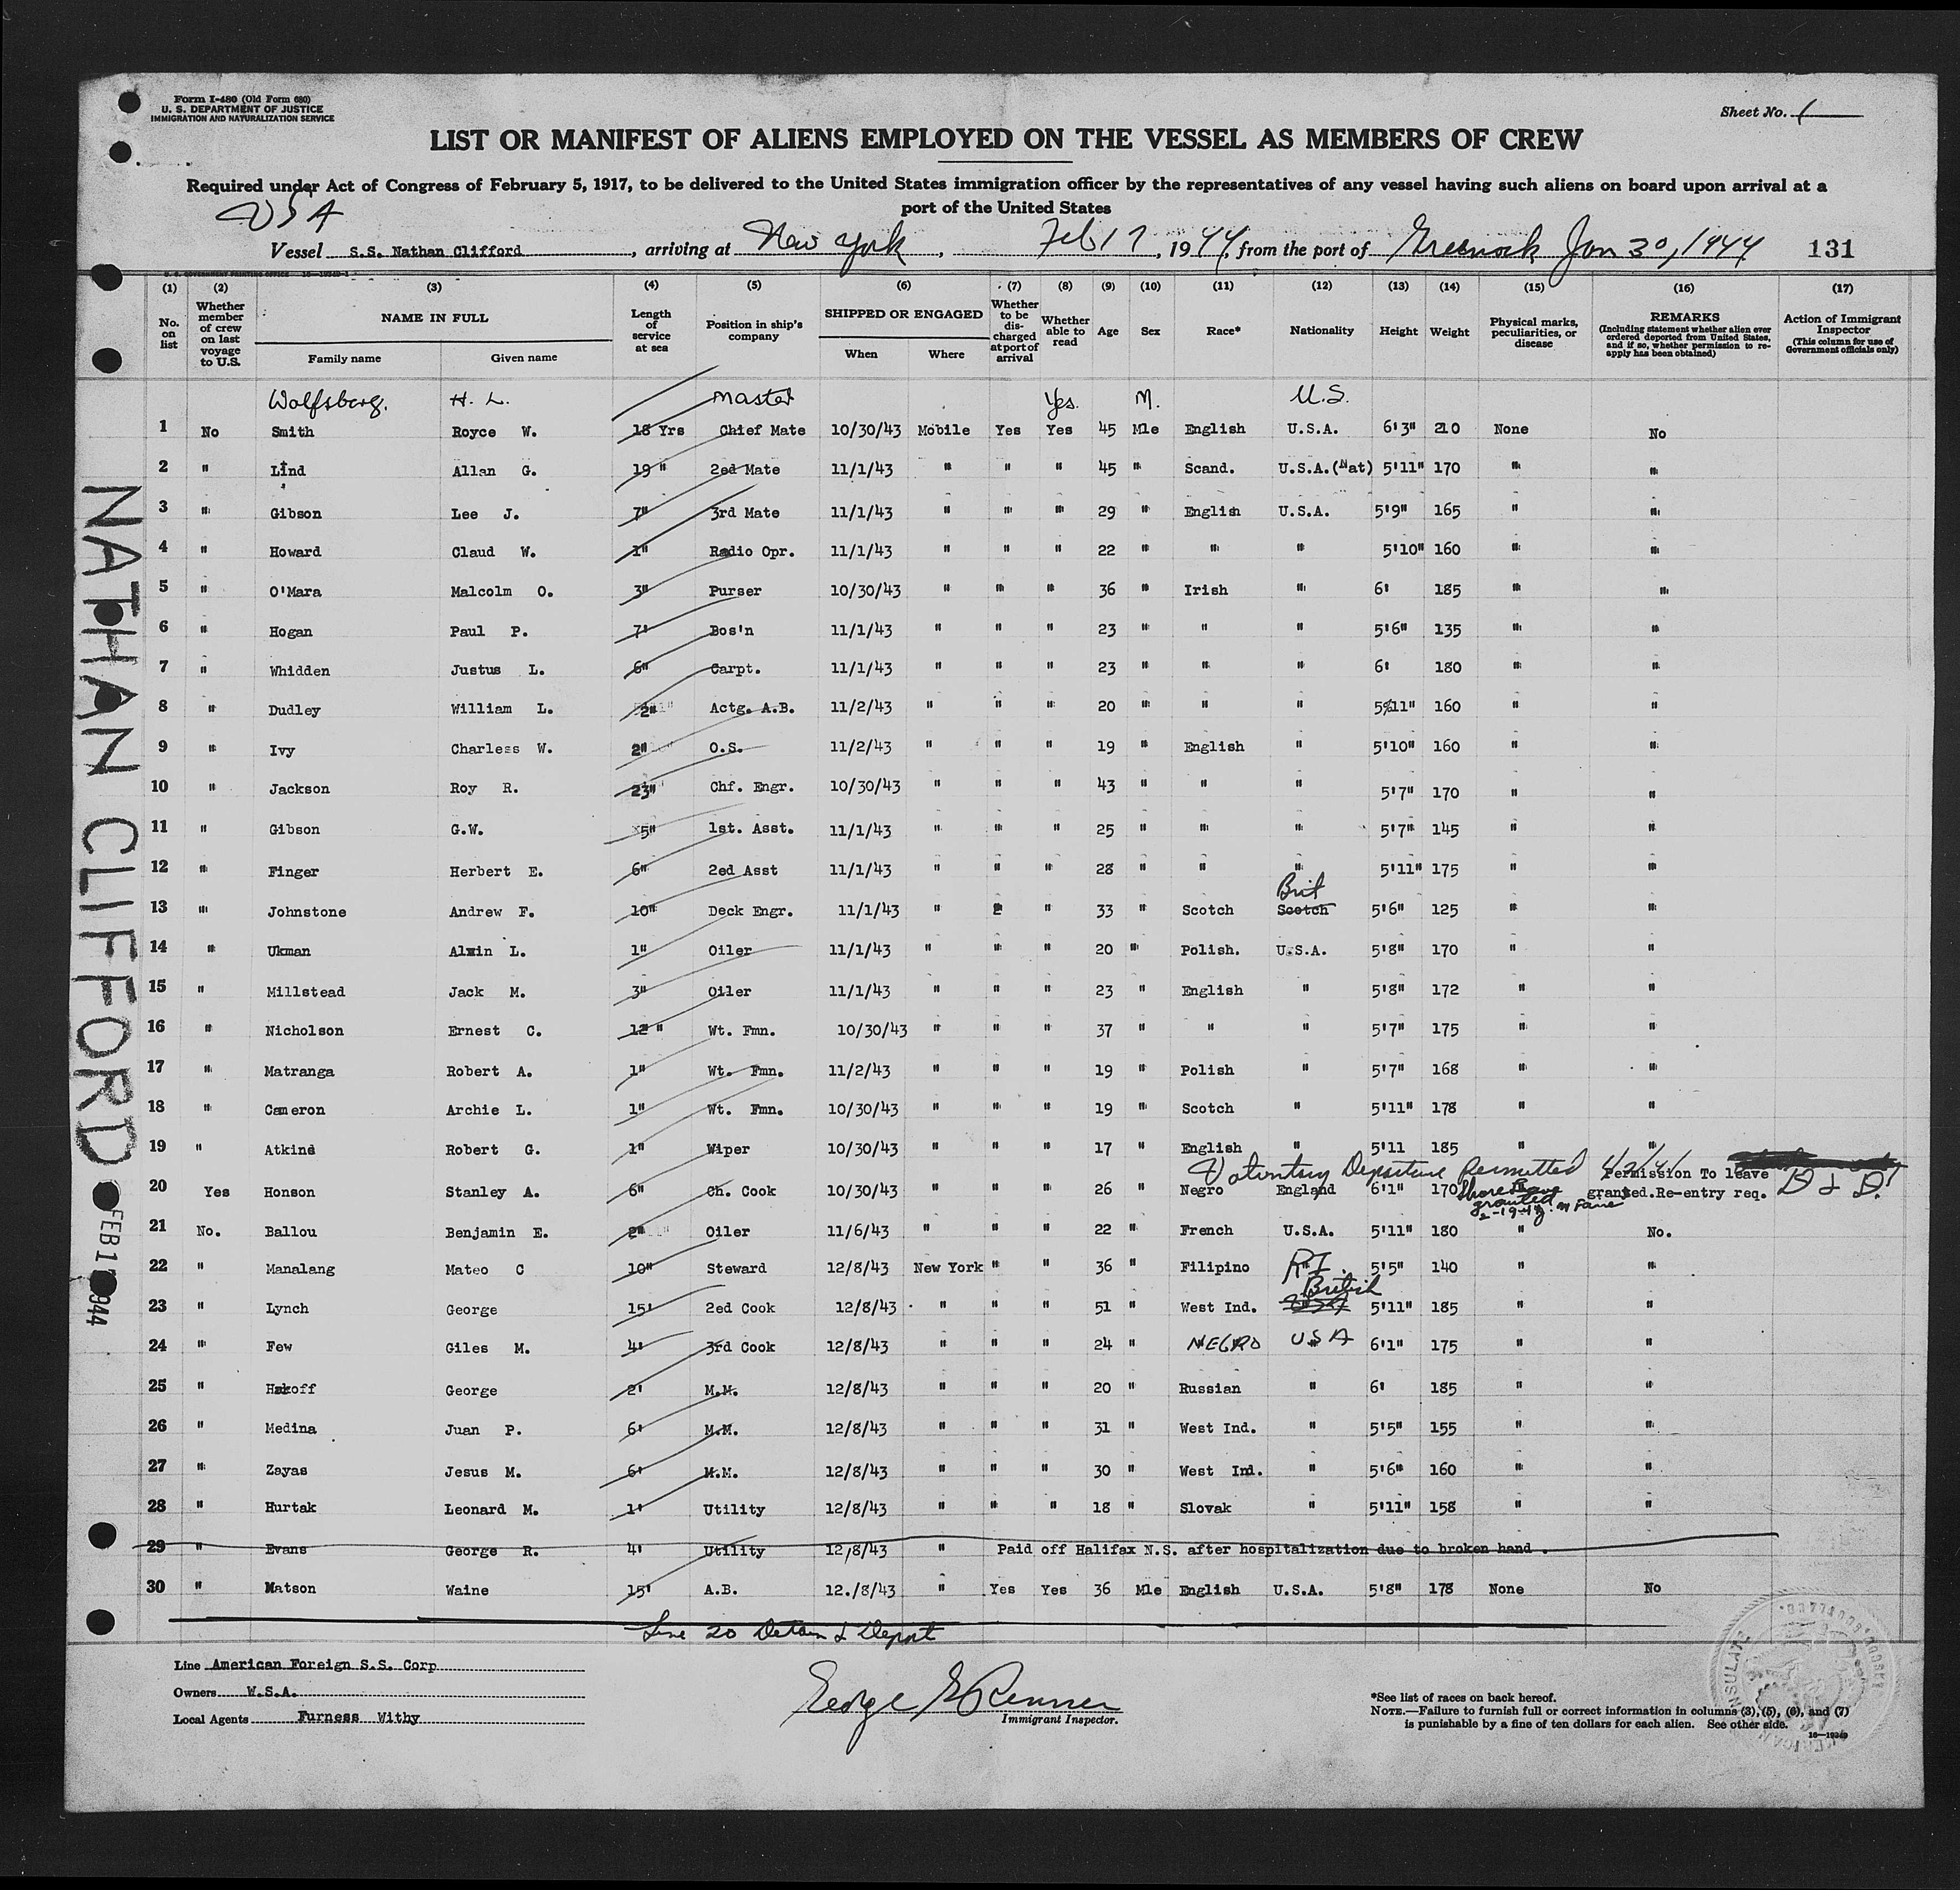 Form I-480 (Old Form 680)
U. S. DEPARTMENT OF JUSTICE
IMMIGRATION AND NATURALIZATION SERVICE
Sheet No. 1
LIST OR MANIFEST OF ALIENS EMPLOYED ON THE VESSEL AS MEMBERS OF CREW
Required under Act of Congress of February 5, 1917, to be delivered to the United States immigration officer by the representatives of any vessel having such aliens on board upon arrival at a
port of the United States
USA
Vessel S.S. Nathan Clifford, arriving at New York, Feb 17, 1944, from the port of Greenock Jan 30, 1944 131
(1) (2) (3) (4) (5) (6) (7) (8) (9) (10) (11) (12) (13) (14) (15) (16) (17)
No. on list Whether member of crew on last voyage to U.S. NAME IN FULL Family name Given name Length of service at sea Position in ship's company SHIPPED OR ENGAGED When Where Whether to be discharged at port of arrival Whether able to read Age Sex Race* Nationality Height Weight Physical marks, peculiarities, or disease REMARKS (Including statement whether alien ever ordered deported from United States, and if so, whether permission to reapply has been obtained) Action of Immigrant Inspector (This column for use of Government officials only)
Wolfsberg. H. L. Master Yes. M. U.S.
1 No Smith Royce W. 18 Yrs Chief Mate 10/30/43 Mobile Yes Yes 45 Mle English U.S.A. 6'3" 210 None No
2 " Lind Allan G. 19 " 2ed Mate 11/1/43 " " " 45 " Scand. U.S.A.(Nat) 5'11" 170 " "
3 " Gibson Lee J. 7" 3rd Mate 11/1/43 " " " 29 " English U.S.A. 5'9" 165 " "
4 " Howard Claud W. 1" Radio Opr. 11/1/43 " " " 22 " " " 5'10" 160 " "
5 " O'Mara Malcolm O. 3" Purser 10/30/43 " " " 36 " Irish " 6' 185 " "
6 " Hogan Paul P. 7' Bos'n 11/1/43 " " " 23 " " " 5'6" 135 " "
7 " Whidden Justus L. 6" Carpt. 11/1/43 " " " 23 " " " 6' 180 " "
8 " Dudley William L. 2" Actg. A.B. 11/2/43 " " " 20 " " " 5'11" 160 " "
9 " Ivy Charless W. 2" O.S. 11/2/43 " " " 19 " English " 5'10" 160 " "
10 " Jackson Roy R. 23" Chf. Engr. 10/30/43 " " " 43 " " " 5'7" 170 " "
11 " Gibson G.W. 5" 1st. Asst. 11/1/43 " " " 25 " " " 5'7" 145 " "
12 " Finger Herbert E. 6" 2ed Asst 11/1/43 " " " 28 " " " 5'11" 175 " "
Brit
13 " Johnstone Andrew F. 10" Deck Engr. 11/1/43 " " " 33 " Scotch Scotch 5'6" 125 " "
14 " Ukman Alwin L. 1" Oiler 11/1/43 " " " 20 " Polish. U.S.A. 5'8" 170 " "
15 " Millstead Jack M. 3" Oiler 11/1/43 " " " 23 " English " 5'8" 172 " "
16 " Nicholson Ernest C. 12 " Wt. Fmn. 10/30/43 " " " 37 " " " 5'7" 175 " "
17 " Matranga Robert A. 1" Wt. Fmn. 11/2/43 " " " 19 " Polish " 5'7" 168 " "
18 " Cameron Archie L. 1" Wt. Fmn. 10/30/43 " " " 19 " Scotch " 5'11" 178 " "
19 " Atkins Robert G. 1" Wiper 10/30/43 " " " 17 " English " 5'11 185 " "
Voluntary Departure Permitted
20 Yes Honson Stanley A. 6" Ch. Cook 10/30/43 " " " 26 " Negro England 6'1" 170 Shore leave granted 2-19-44 Permission To leave granted. Re-entry req. D & D!
21 No. Ballou Benjamin E. 2" Oiler 11/6/43 " " " 22 " French U.S.A. 5'11" 180 " No.
22 " Manalang Mateo C 10" Steward 12/8/43 New York " " 36 " Filipino P.I. 5'5" 140 " "
British
23 " Lynch George 15' 2ed Cook 12/8/43 " " " 51 " West Ind. 5'11" 185 " "
24 " Few Giles M. 4' 3rd Cook 12/8/43 " " " 24 " NEGRO USA 6'1" 175 " "
25 " Hakoff George 2' M.M. 12/8/43 " " " 20 " Russian " 6' 185 " "
26 " Medina Juan P. 6' M.M. 12/8/43 " " " 31 " West Ind. " 5'5" 155 " "
27 " Zayas Jesus M. 6' M.M. 12/8/43 " " " 30 " West Ind. " 5'6" 160 " "
28 " Hurtak Leonard M. 1' Utility 12/8/43 " " " 18 " Slovak " 5'11" 158 " "
29 " Evans George R. 4' Utility 12/8/43 " Paid off Halifax N.S. after hospitalization due to broken hand .
30 " Matson Waine 15' A.B. 12./8/43 " Yes Yes 36 Mle English U.S.A. 5'8" 178 None No
Line 20 Detain & Deport
Line American Foreign S.S. Corp
Owners W.S.A.
Local Agents Furness Withy
George E Renner
Immigrant Inspector.
*See list of races on back hereof.
NOTE.—Failure to furnish full or correct information in columns (3), (5), (6), and (7)
is punishable by a fine of ten dollars for each alien. See other side.
16—19349
NATHAN CLIFFORD
FEB 17 1944